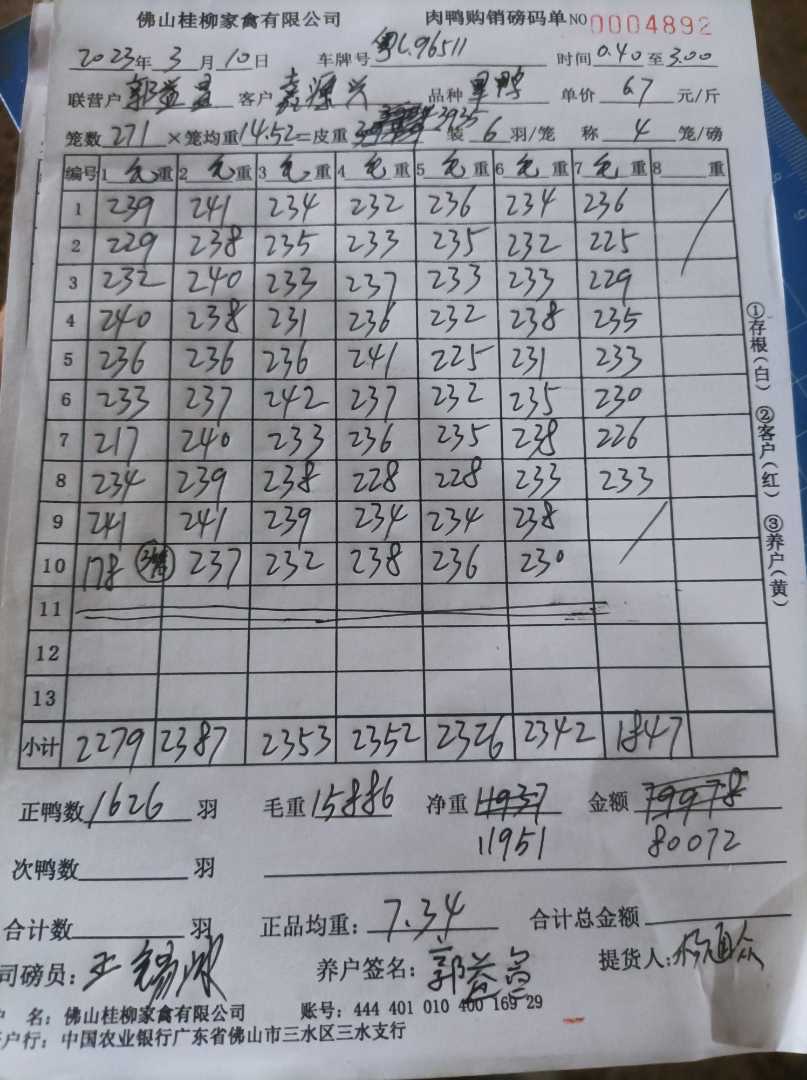 佛山桂柳家禽有限公司 肉鸭购销磅码单 NO 0004892
2023年 3月10日 车牌号 粤L.96511 时间 0.40 至 3.00
联营户 郭益昌 客户 嘉源兴 品种 单价 6.7 元/斤
笼数 271 ×笼均重 14.52 =皮重 3935 装 6 羽/笼 称 4 笼/磅
编号 1 毛 重 2 毛 重 3 毛 重 4 毛 重 5 毛 重 6 毛 重 7 毛 重 8 重
1 239 241 234 232 236 234 236
2 229 238 235 233 235 232 225
3 232 240 233 237 233 233 229
4 240 238 231 236 232 238 235
5 236 236 236 241 225 231 233
6 233 237 242 237 232 235 230
7 217 240 233 236 235 238 226
8 234 239 238 228 228 233 233
9 241 241 239 234 234 238
10 178 237 232 238 236 230
11
12
13
小计 2279 2387 2353 2352 2326 2342 1847
正鸭数 1626 羽 毛重 15886 净重 11937 金额 79978
11951 80072
次鸭数 羽
合计数 羽 正品均重: 7.34 合计总金额
司磅员: 养户签名: 郭益昌 提货人:
户 名: 佛山桂柳家禽有限公司 账号: 444 401 010 400 169 29
户行: 中国农业银行广东省佛山市三水区三水支行
①存根(白) ②客户(红) ③养户(黄)